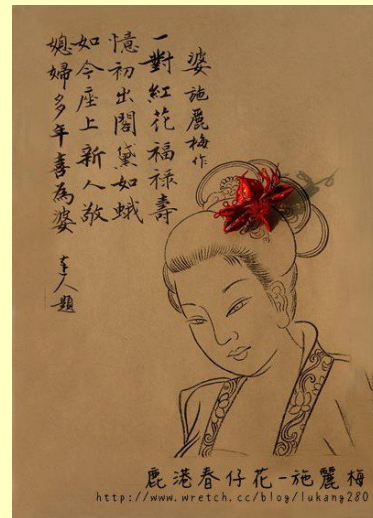 婆 施麗梅作
一對紅花福祿壽
憶初出閣黛如蛾
如今座上新人敬
媳婦多年喜為婆 達人題
鹿港春仔花-施麗梅
http://www.wretch.cc/blog/lukang280